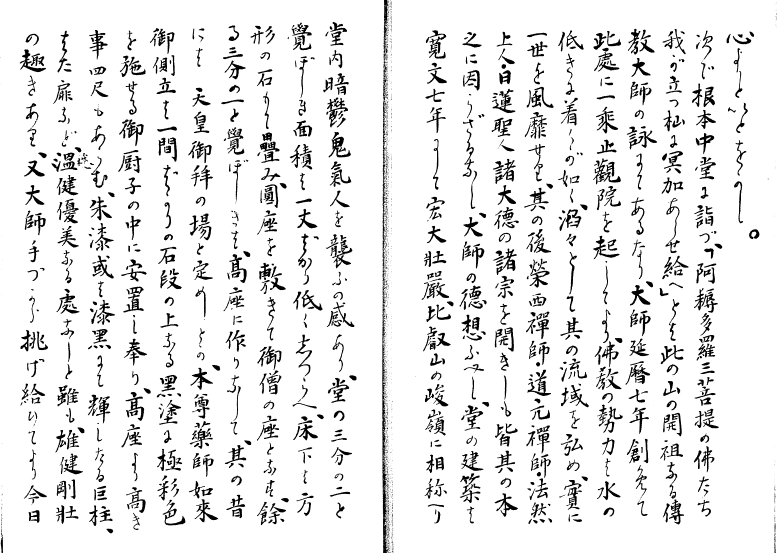 心よりいとをかし。
次で根本中堂に詣づ、「阿耨多羅三菩提の佛たち
我が立つ杣に冥加あらせ給へ」とは此の山の開祖なる傳
教大師の詠にてあるなり、大師延曆七年創めて
此處に一乘止觀院を起してより、佛教の勢力は水の
低きに着くが如く滔々として其の流域を弘め、實に
一世を風靡せり、其の後榮西禪師・道元禪師・法然
上人・日蓮聖人諸大德の諸宗を開きしも皆其の本
之に因らざるなし、大師の德想ふべし、堂の建築は
寬文七年にして宏大壯嚴、比叡山の峻嶺に相稱へり
堂内暗鬱鬼氣人を襲ふの感あり、堂の三分の二と
覺ぼしき面積は一丈ばかり低くしつらへ、床下は方
形の石もて疊み、圓座を敷きて御僧の座となす、餘
る三分の一と覺ぼしきは、高座に作りなして、其の昔
にも 天皇御拜の場と定めしとの、本尊藥師如來
御側立は一間ばかりの石段の上なる黑塗に極彩色
を施せる御厨子の中に安置し奉り、高座より高き
事四尺もあらむ、朱漆或は漆黑にて輝したる巨柱、
はた扉など、溫健優美なる處なしと雖も、雄健剛壯
の趣きあり、又大師手づから挑げ給ひてより今日